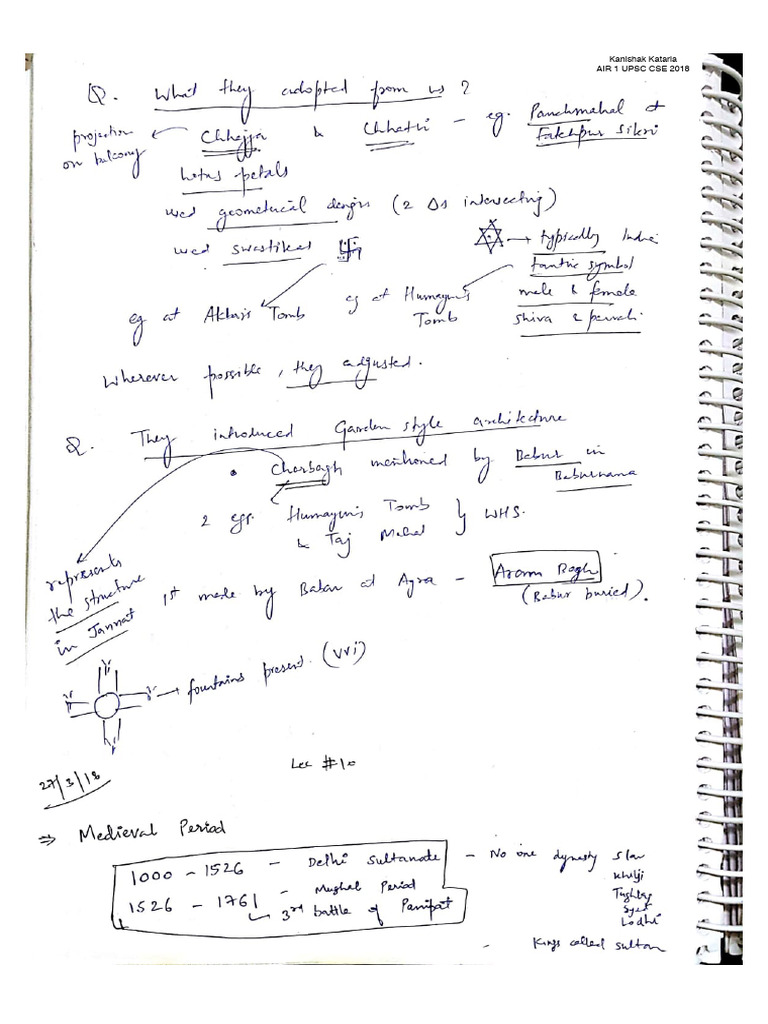 Kanishak Kataria
AIR 1 UPSC CSE 2018
Q. What they adopted from us ?
projection on balcony ← Chhajja & Chhatri - eg. Panchmahal at Fatehpur Sikri
lotus petals
used geometrical designs (2 Δs intersecting)
used swastikas 卐 → typically Indic
tantric symbol
male & female
shiva & parvati
eg at Akbar's Tomb eg at Humayun's Tomb
Wherever possible, they adjusted.
Q. They introduced Garden style architecture
• Charbagh mentioned by Babur in Baburnama
2 egs. Humayun's Tomb & Taj Mahal } WHS.
represents the structure in Jannat
1st made by Babur at Agra - Aram Bagh
(Babur buried).
→ fountains present. (VVI)
27/3/18
Lec #10
⇒ Medieval Period
1000 - 1526 - Delhi Sultanate - No one dynasty Slav
Khilji
Tughlaq
Syed
Lodhi
1526 - 1761 - Mughal Period
↳ 3rd battle of Panipat
- Kings called sultan